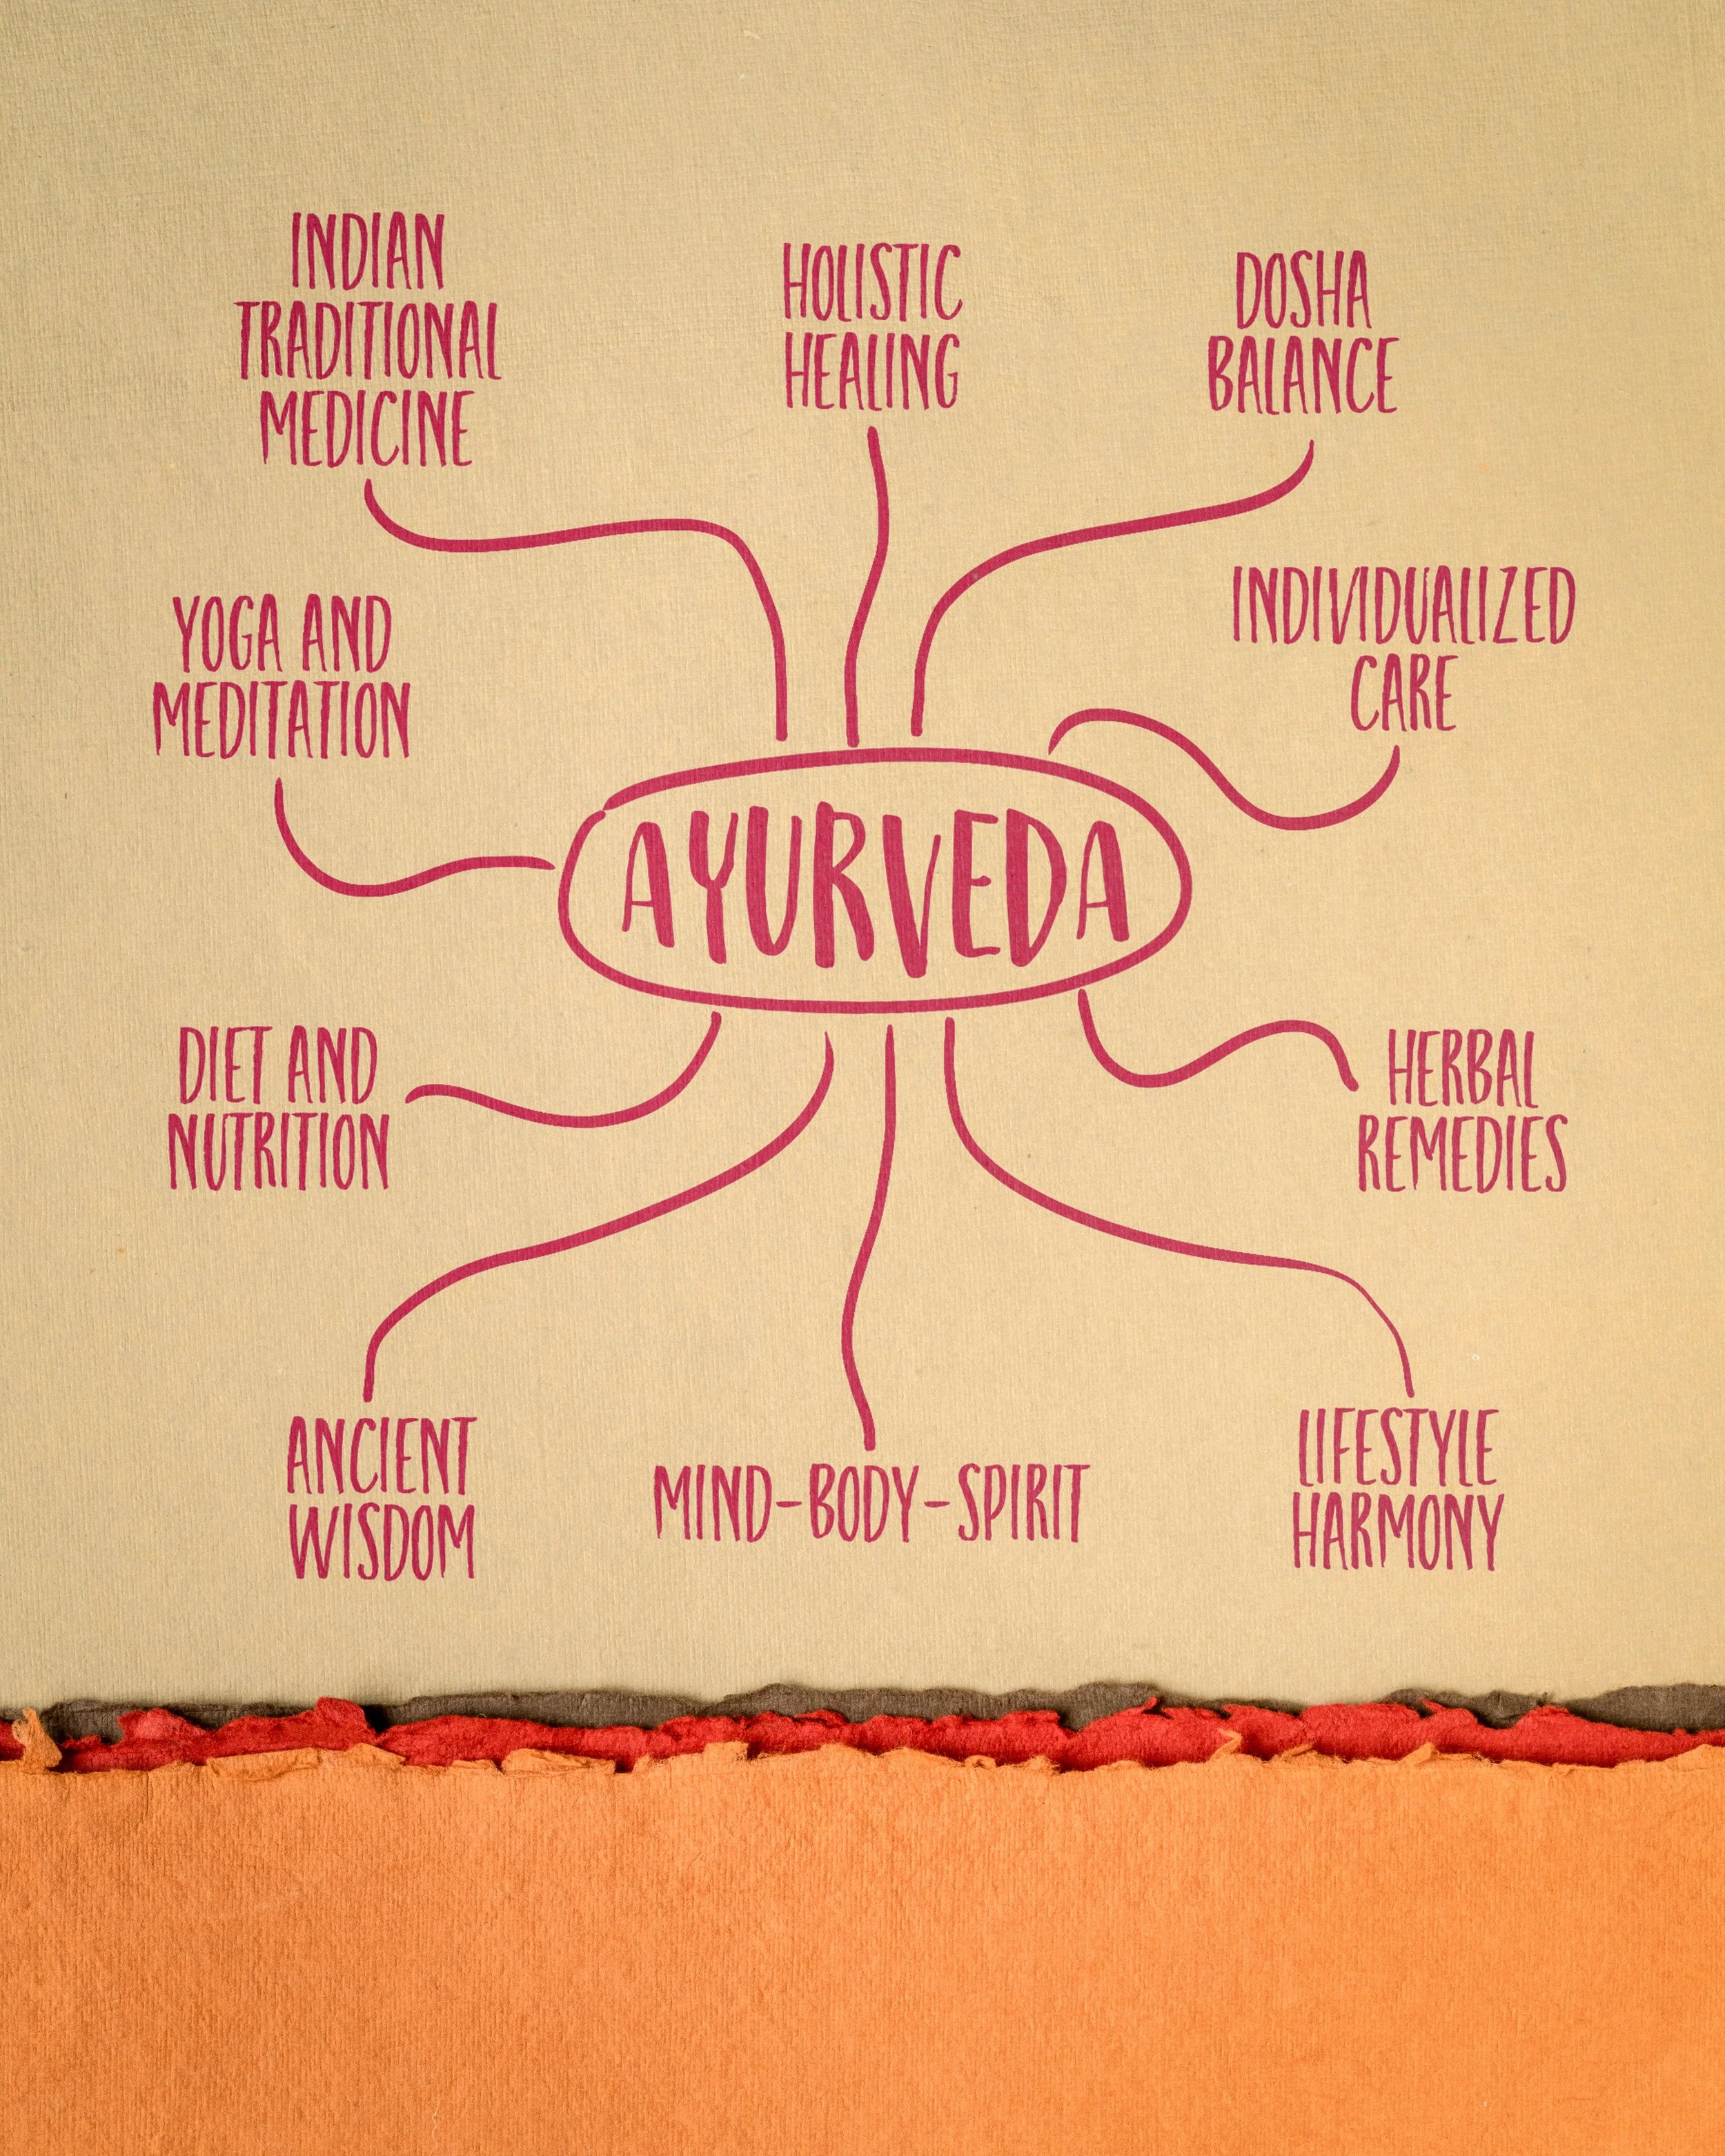 INDIAN
TRADITIONAL
MEDICINE
HOLISTIC
HEALING
DOSHA
BALANCE
YOGA AND
MEDITATION
INDIVIDUALIZED
CARE
AYURVEDA
DIET AND
NUTRITION
HERBAL
REMEDIES
ANCIENT
WISDOM
MIND-BODY-SPIRIT
LIFESTYLE
HARMONY